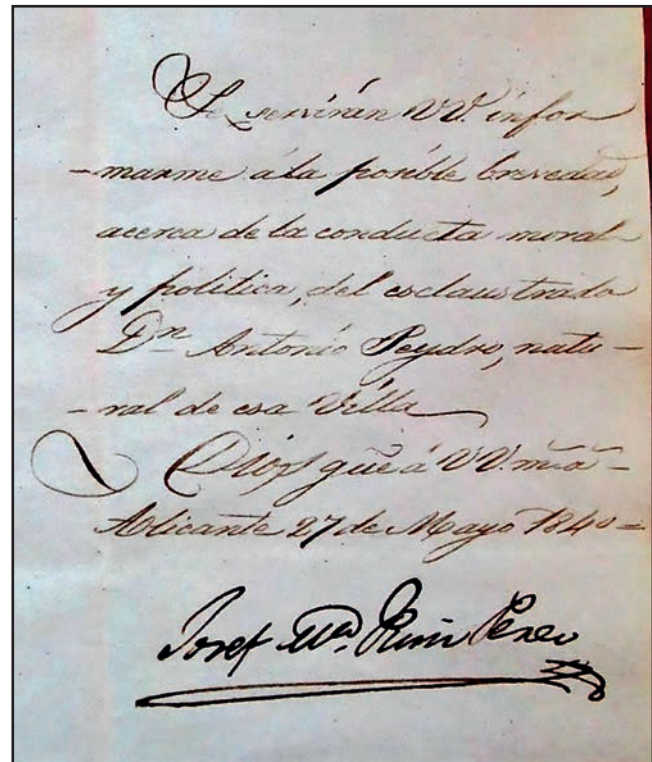 Se servirán VV. infor
-marme á la posible brevedad,
acerca de la conducta moral
y politica, del esclaustrado
Dn Antonio Peydro, natu-
-ral de esa Villa
Dios gũe á VV. m.a.
Alicante 27 de Mayo 1840=
Josef Ma. Perez